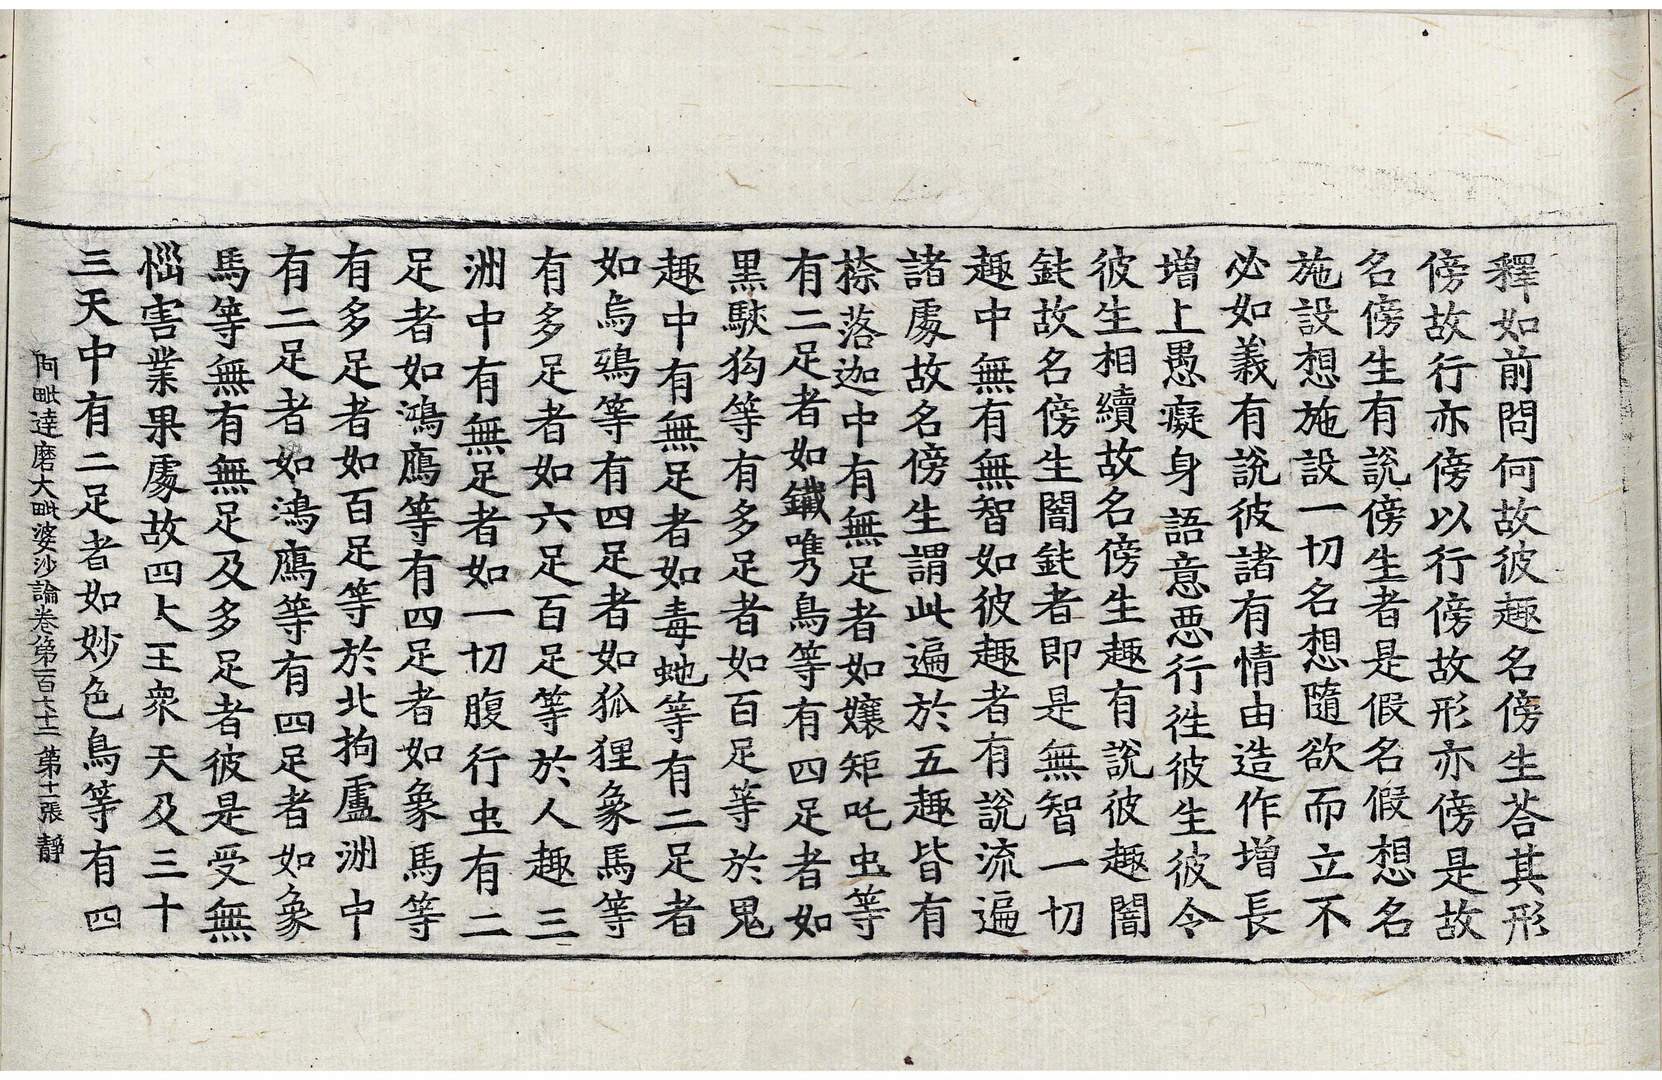 釋如前問何故彼趣名傍生荅其形
傍故行亦傍以行傍故形亦傍是故
名傍生有說傍生者是假名假想名
施設想施設一切名想隨欲而立不
必如義有說彼諸有情由造作增長
增上愚癡身語意惡行徃彼生彼令
彼生相續故名傍生趣有說彼趣闇
鈍故名傍生闇鈍者即是無智一切
趣中無有無智如彼趣者有說流遍
諸處故名傍生謂此遍於五趣皆有
㮈落迦中有無足者如孃矩吒虫等
有二足者如鐵嘴鳥等有四足者如
黑駮狗等有多足者如百足等於鬼
趣中有無足者如毒虵等有二足者
如烏鵶等有四足者如狐狸象馬等
有多足者如六足百足等於人趣三
洲中有無足者如一切腹行虫有二
足者如鴻鴈等有四足者如象馬等
有多足者如百足等於北拘盧洲中
有二足者如鴻鴈等有四足者如象
馬等無有無足及多足者彼是受無
惱害業果處故四大王衆天及三十
三天中有二足者如妙色鳥等有四
阿毗達磨大毗婆沙論卷第一百七十二 第十一張 靜